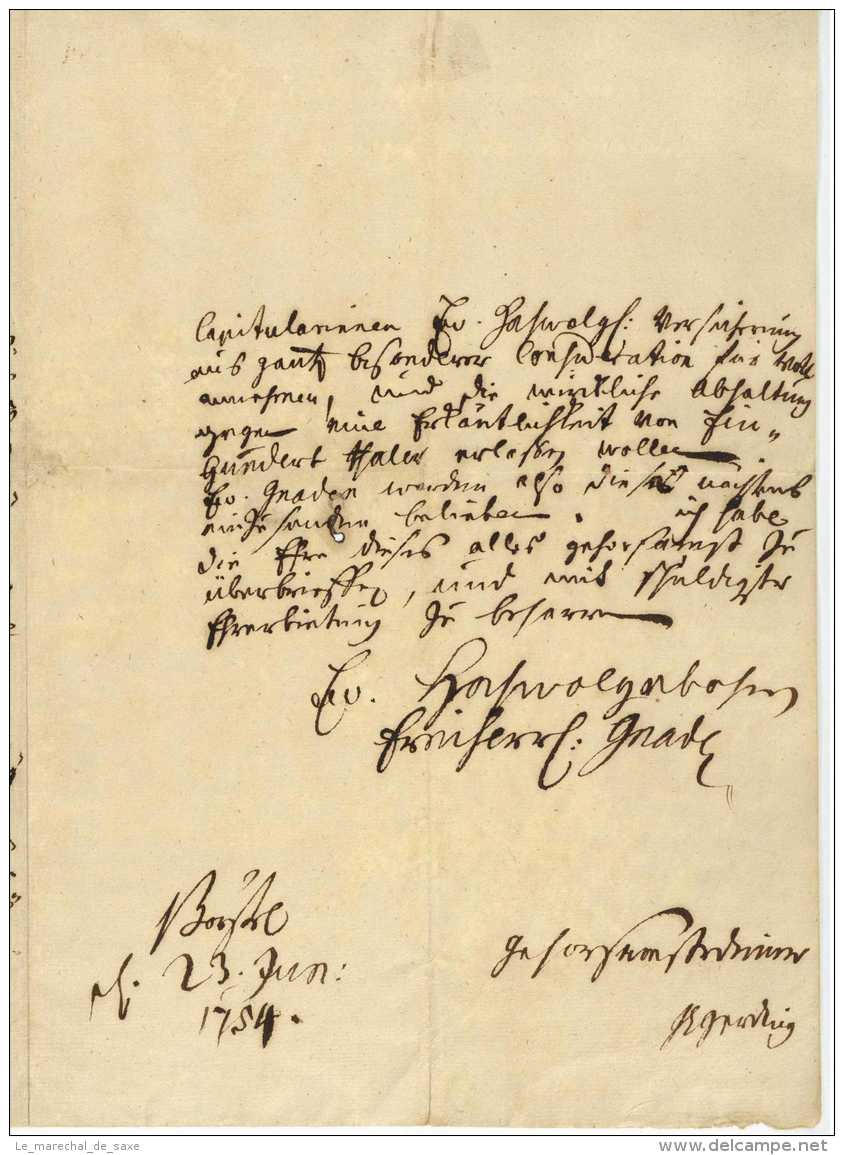 Capitularinnen Ew. Hochwolgb: Versicherung
aus gantz besonderer Consideration für voll
annehmen, und die würckliche Abhaltung
gegen eine Erkäntlichkeit von Ein„
Hundert Thaler erlassen wollen
Ew. Gnaden werden also dieses nächstens
einzusenden belieben. ich habe
die Ehre dieses alles gehorsamst zu
überbrieffen, und mit schuldigster
Ehrerbietung zu beharren
Ew. Hochwolgebohrn
Freiherrl: Gnaden
Börstel
d. 23. Jun:
1754.
gehorsamster diener
Le_marechal_de_saxe
www.delcampe.net